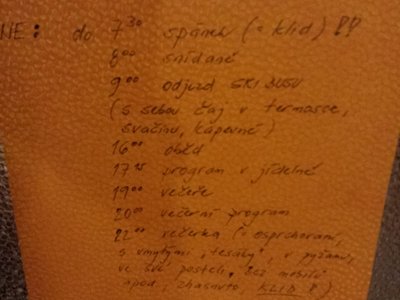 NE: do 7³⁰ spánek (= klid) !!
8⁰⁰ snídaně
9⁰⁰ odjezd SKIBUSU
(s sebou čaj v termosce,
svačinu, kapesné)
16⁰⁰ oběd
17¹⁵ program v jídelně
19⁰⁰ večeře
20⁰⁰ večerní program
22⁰⁰ večerka (= osprchovaní,
s umytými "tesáky", v pyžamu,
ve své posteli, bez mobilu
apod., zhasnuto KLID!)